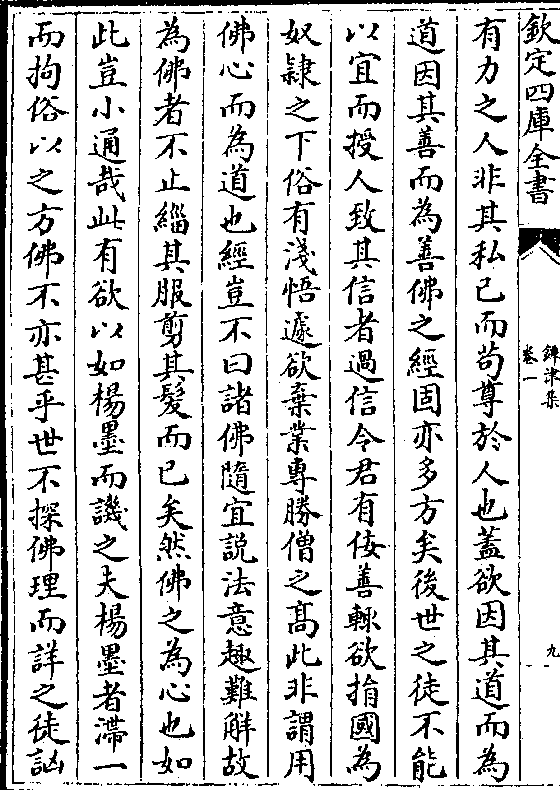 欽定四庫全書
鐔津集
卷一
九
有力之人非其私己而苟尊於人也蓋欲因其道而為
道因其善而為善佛之經固亦多方矣後世之徒不能
以宜而授人致其信者過信令君有佞善輙欲捐國為
奴隸之下俗有淺悟遽欲棄業專勝僧之髙此非謂用
佛心而為道也經豈不曰諸佛隨宜説法意趣難解故
為佛者不止緇其服剪其髮而已矣然佛之為心也如
此豈小通哉此有欲以如楊墨而譏之夫楊墨者滯一
而拘俗以之方佛不亦甚乎世不探佛理而詳之徒訩